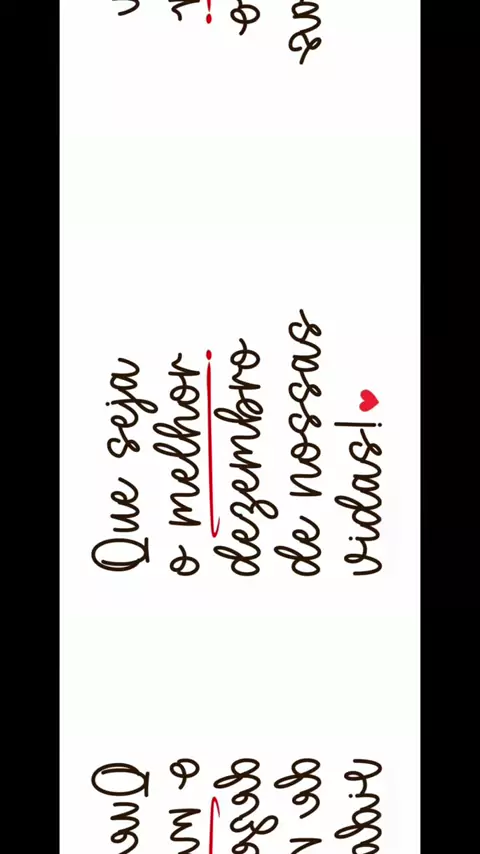 Que seja
o melhor
dezembro
de nossas
vidas!